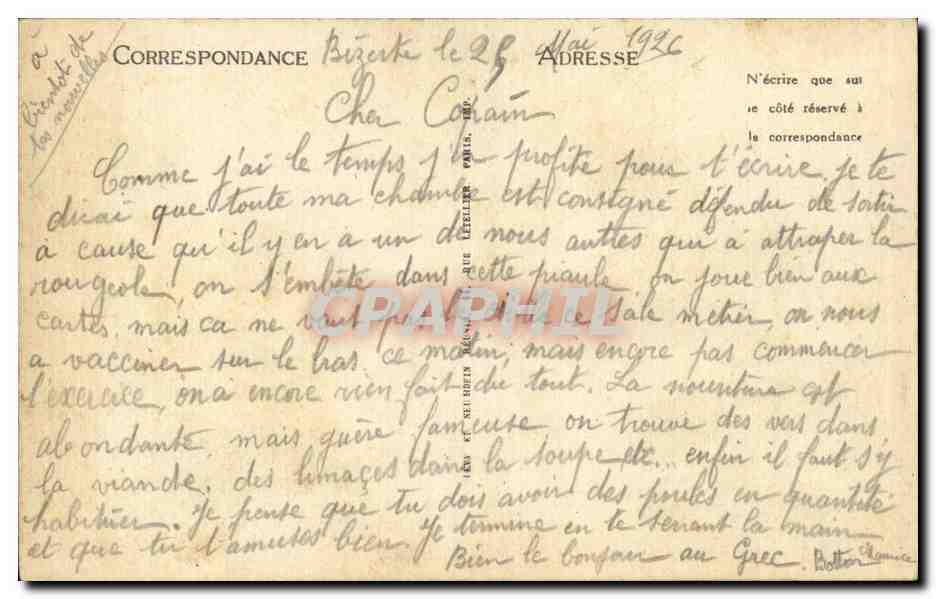 à
bientôt de
tes nouvelles
CORRESPONDANCE
Bizerte le 25 Mai 1926
ADRESSE
N'écrire que sur
le côté réservé à
la correspondance
Cher Copain
Comme j'ai le temps j'en profite pour t'écrire, je te
dirai que toute ma chambe est consigné défendu de sortir
à cause qu'il y en a un de nous autres qui a attraper la
rougeole, on s'embête dans cette piaule on joue bien aux
cartes, mais ca ne vaut pas ce sale métier, on nous
a vacciner sur le bras ce matin, mais encore pas commencer
l'exercice, on a encore rien fait du tout. La nourriture est
abondante mais guère fameuse on trouve des vers dans
la viande, des limaçes dans la soupe etc... enfin il faut s'y
habituer. Je pense que tu dois avoir des poules en quantité
et que tu t'amuses bien. Je termine en te serrant la main
Bien le bonjour au Grec. Botton Maurice
LEVY ET NEURDEIN RÉUNIS, RUE LETELLIER, PARIS, IMP.
CPAPHIL